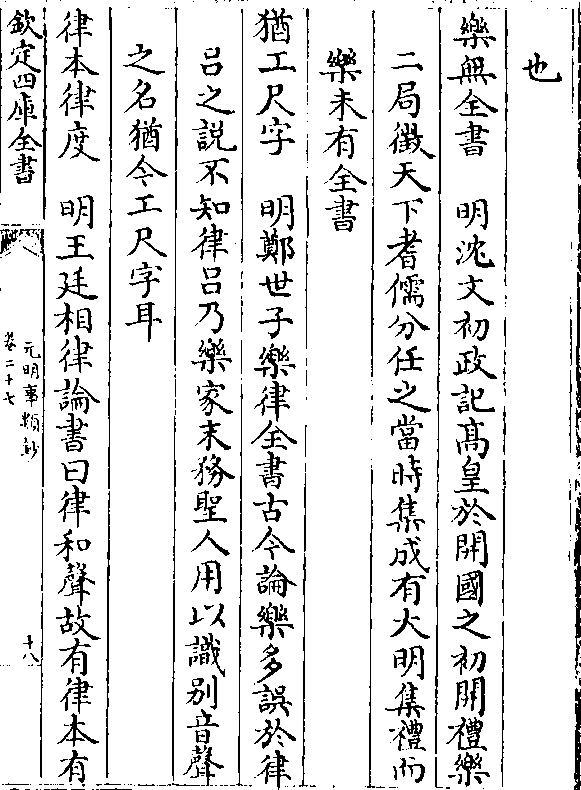 也
樂無全書　明沈文初政記髙皇於開國之初開禮樂
二局徴天下耆儒分任之當時集成有大明集禮而
樂未有全書
猶工尺字　明鄭世子樂律全書古今論樂多誤於律
吕之説不知律吕乃樂家末務聖人用以識别音聲
之名猶今工尺字耳
律本律度　明王廷相律論書曰律和聲故有律本有
欽定四庫全書
元明事類鈔
卷二十七
十八